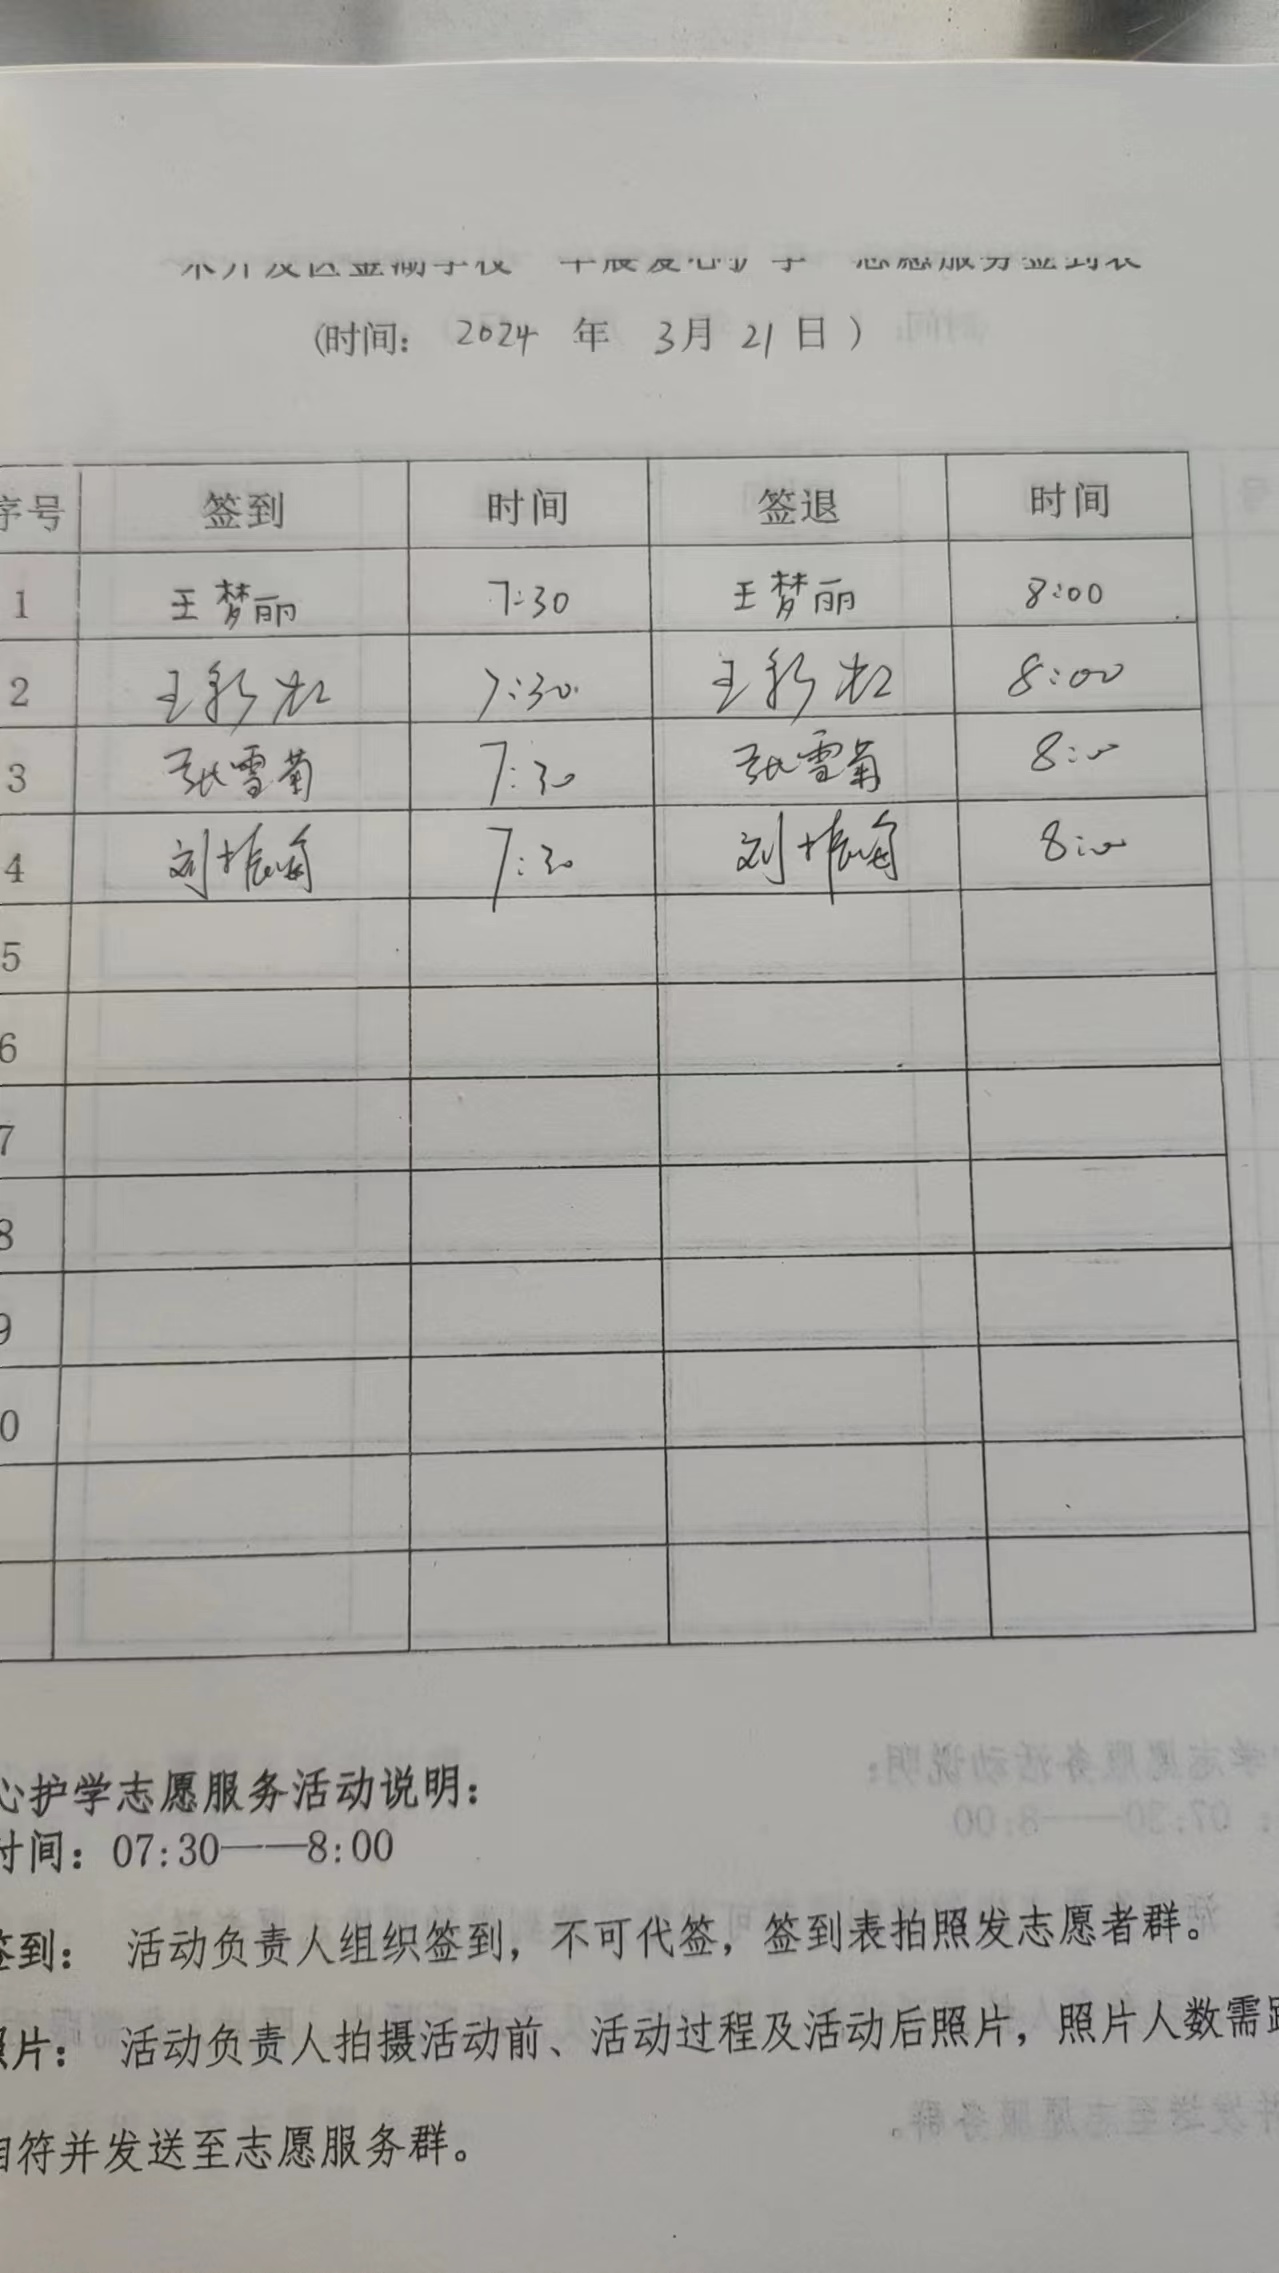 (时间： 2024 年 3月 21 日 )
序号 签到 时间 签退 时间
1 王梦丽 7:30 王梦丽 8:00
2 7:30 8:00
3 张雪菊 7:30 张雪菊 8:00
4 7:30 8:00
5
6
7
8
9
0
心护学志愿服务活动说明：
时间：07:30——8:00
签到： 活动负责人组织签到，不可代签，签到表拍照发志愿者群。
照片： 活动负责人拍摄活动前、活动过程及活动后照片，照片人数需
相符并发送至志愿服务群。